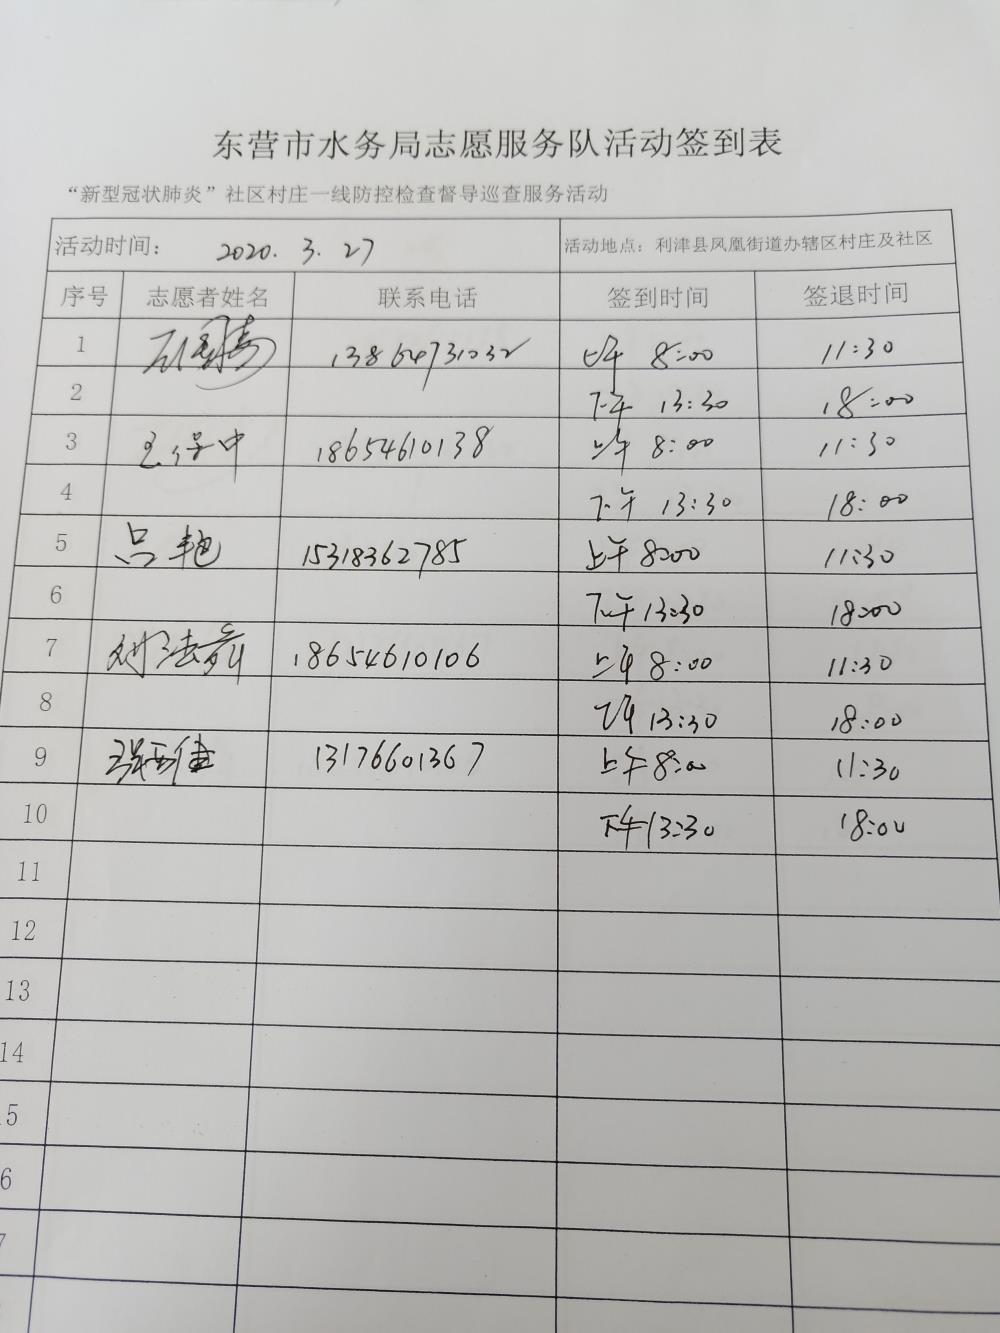 东营市水务局志愿服务队活动签到表
“新型冠状肺炎”社区村庄一线防控检查督导巡查服务活动
活动时间： 2020. 3. 27 活动地点：利津县凤凰街道办辖区村庄及社区
序号 志愿者姓名 联系电话 签到时间 签退时间
1 13864731032 上午 8:00 11:30
2 下午 13:30 18:00
3 王保中 18654610138 上午 8:00 11:30
4 下午 13:30 18:00
5 吕艳 15318362785 上午 8:00 11:30
6 下午 13:30 18:00
7 18654610106 上午 8:00 11:30
8 下午 13:30 18:00
9 13176601367 上午 8:00 11:30
10 下午 13:30 18:00
11
12
13
14
5
6
7